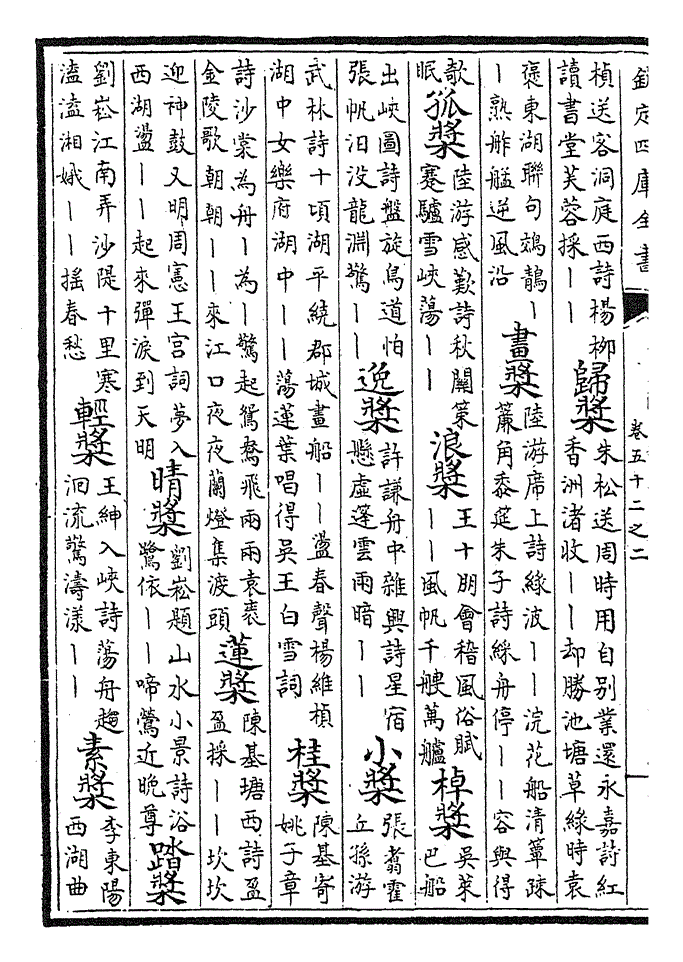 欽定四庫全書
卷五十二之二
一
楨送客洞庭西詩楊柳
讀書堂芙蓉採丨丨
歸槳
朱松送周時用自别業還永嘉詩紅
香洲渚收丨丨却勝池塘草緑時袁
褒東湖聯句鵁鶄丨
丨熟舴艋逆風沿
畫槳
陸游席上詩緑波丨丨浣花船清簟疎
簾角黍筵朱子詩綵舟停丨丨容與得
欹
眠
孤槳
陸游感歎詩秋關策
蹇驢雪峽蕩丨丨
浪槳
王十朋會稽風俗賦
丨丨風帆千艘萬艫
棹槳
吳萊
巴船
出峽圖詩盤旋鳥道怕
張帆汨没龍淵驚丨丨
逸槳
許謙舟中雜興詩星宿
懸虛蓬雲雨暗丨丨
小槳
張翥霍
丘孫游
武林詩十頃湖平繞郡城畫船丨丨盪春聲楊維楨
湖中女樂府湖中丨丨蕩蓮葉唱得吳王白雪詞
桂槳
陳基寄
姚子章
詩沙棠為舟丨為丨驚起鴛鴦飛兩兩袁褧
金陵歌朝朝丨丨來江口夜夜蘭燈集渡頭
蓮槳
陳基塘西詩盈
盈採丨丨坎坎
迎神鼓又明周憲王宫詞夢入
西湖盪丨丨起來彈淚到天明
晴槳
劉崧題山水小景詩浴
鷺依丨丨啼鶯近晚尊
踏槳
劉崧江南弄沙隄十里寒
溘溘湘娥丨丨揺春愁
輕槳
王紳入峽詩蕩舟趨
洄流驚濤漾丨丨
素槳
李東陽
西湖曲